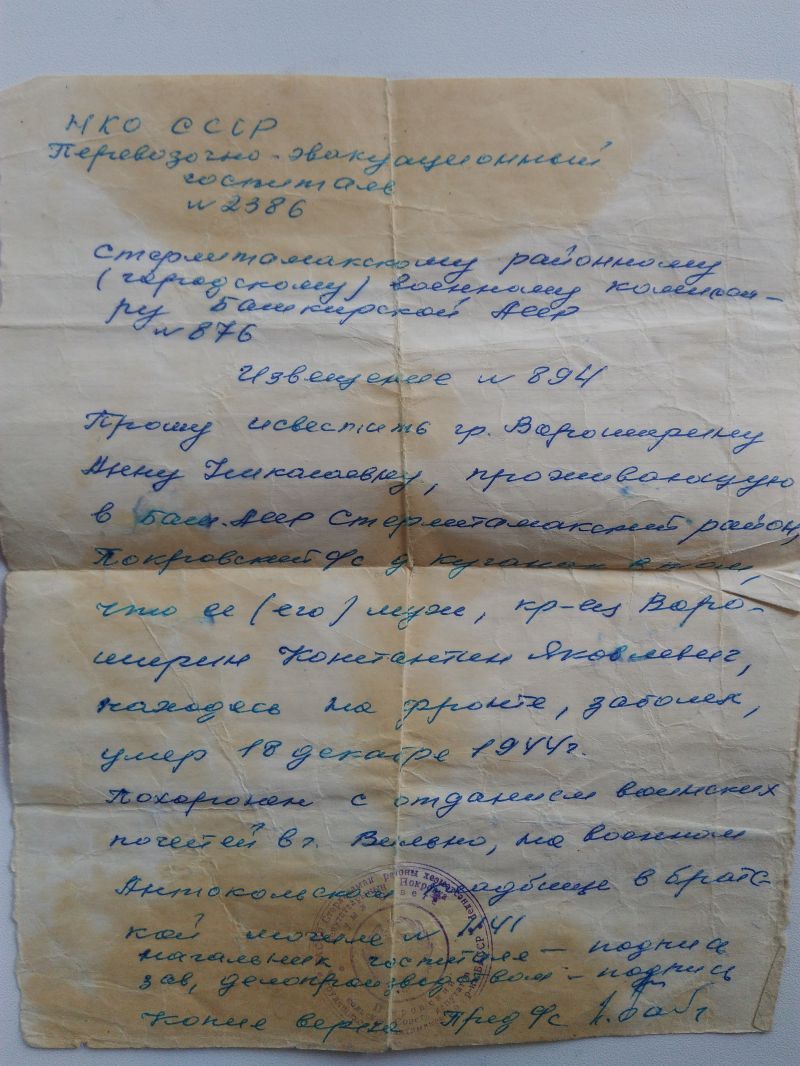 НКО СССР
Перевозочно-эвакуационный
госпиталь
№ 2386
Стерлитамакскому районному
(городскому) военному комисса-
ру Башкирской АССР
№ 876
Извещение № 894
Прошу известить гр. Вороширину
Анну Николаевну, проживающую
в Баш. АССР Стерлитамакский район,
Покровский с/с д. Кучаново в том,
что ее (его) муж, кр-ец Воро-
ширин Константин Яковлевич,
находясь на фронте, заболел,
умер 18 декабря 1944 г.
Похоронен с отданием воинских
почестей в г. Вильно, на военном
Антокольском кладбище в братс-
кой могиле № 1141
начальник госпиталя – подпись
зав. делопроизводством – подпись
Копия верна Пред с/с